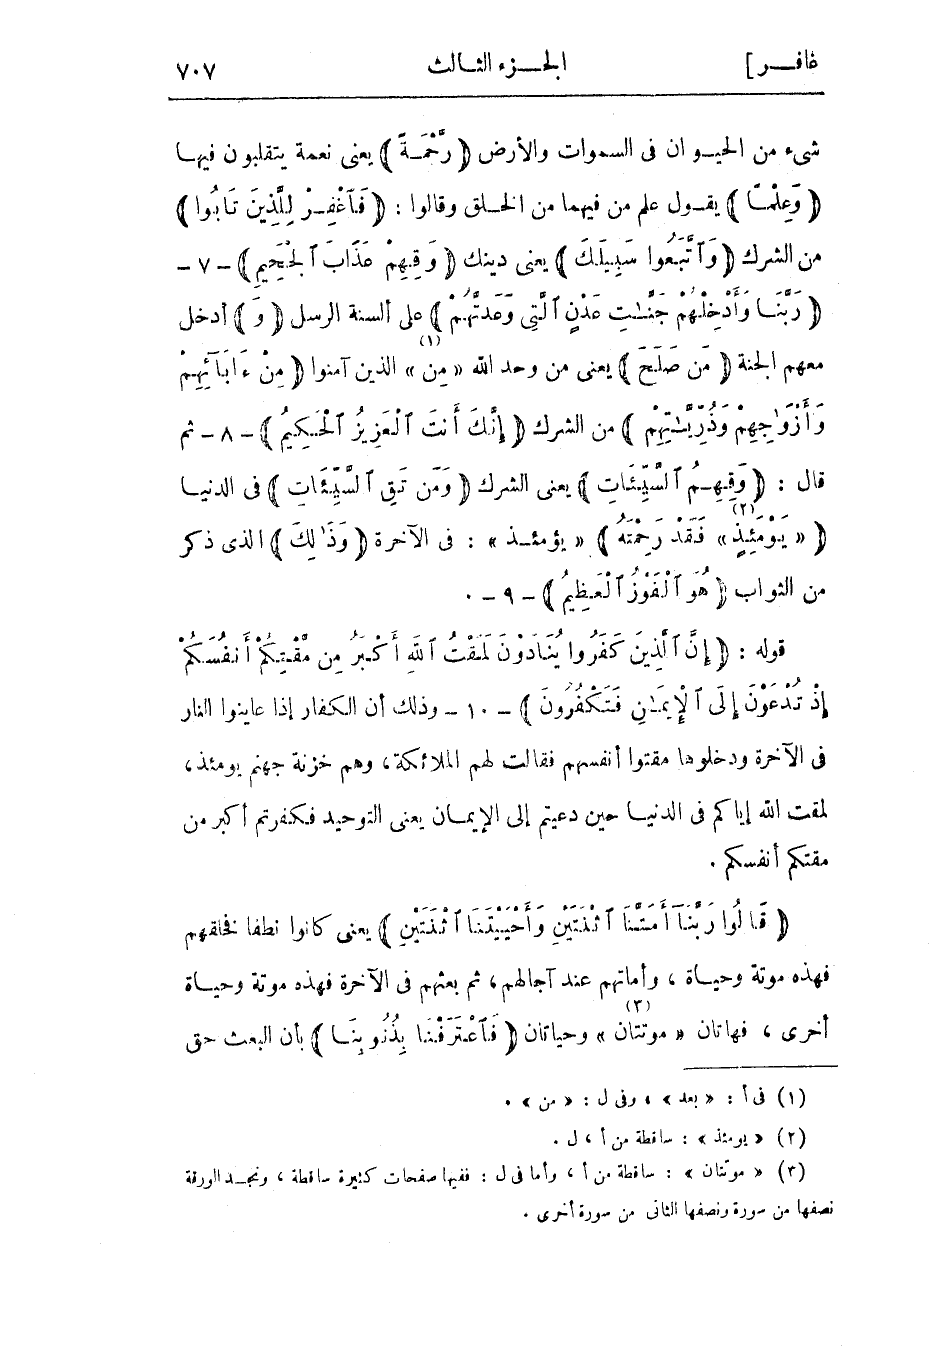 غافر]
الجزء الثالث
٧٠٧
شىء من الحيوان فى السموات والأرض ﴿ رَّحْمَةً ﴾ يعنى نعمة يتقلبون فيها
﴿ وَعِلْمًا ﴾ يقول علم من فيهما من الخلق وقالوا : ﴿ فَٱغْفِرْ لِلَّذِينَ تَابُوا ﴾
من الشرك ﴿ وَٱتَّبَعُوا سَبِيلَكَ ﴾ يعنى دينك ﴿ وَقِهِمْ عَذَابَ ٱلْجَحِيمِ ﴾ - ٧ -
﴿ رَبَّنَا وَأَدْخِلْهُمْ جَنَّـٰتِ عَدْنٍ ٱلَّتِى وَعَدتَّهُمْ ﴾ على ألسنة الرسل ﴿ وَ ﴾ أدخل
معهم الجنة ﴿ مَن صَلَحَ ﴾ يعنى من وحد الله « مِن » (١) الذين آمنوا ﴿ مِنْ ءَابَآئِهِمْ
وَأَزْوَٰجِهِمْ وَذُرِّيَّـٰتِهِمْ ﴾ من الشرك ﴿ إِنَّكَ أَنتَ ٱلْعَزِيزُ ٱلْحَكِيمُ ﴾ - ٨ - ثم
قال : ﴿ وَقِهِمُ ٱلسَّيِّئَاتِ ﴾ يعنى الشرك ﴿ وَمَن تَقِ ٱلسَّيِّئَاتِ ﴾ فى الدنيا
﴿ « يَوْمَئِذٍ » (٢) فَقَدْ رَحِمْتَهُ ﴾ « يؤمئذ » : فى الآخرة ﴿ وَذَٰلِكَ ﴾ الذى ذكر
من الثواب ﴿ هُوَ ٱلْفَوْزُ ٱلْعَظِيمُ ﴾ - ٩ - .
قوله : ﴿ إِنَّ ٱلَّذِينَ كَفَرُوا يُنَادَوْنَ لَمَقْتُ ٱللَّهِ أَكْبَرُ مِن مَّقْتِكُمْ أَنفُسَكُمْ
إِذْ تُدْعَوْنَ إِلَى ٱلْإِيمَـٰنِ فَتَكْفُرُونَ ﴾ - ١٠ - وذلك أن الكفار إذا عاينوا النار
فى الآخرة ودخلوها مقتوا أنفسهم فقالت لهم الملائكة، وهم خزنة جهنم يومئذ،
لمقت الله إياكم فى الدنيا حين دعيتم إلى الإيمان يعنى التوحيد فكفرتم أكبر من
مقتكم أنفسكم .
﴿ قَالُوا رَبَّنَآ أَمَتَّنَا ٱثْنَتَيْنِ وَأَحْيَيْتَنَا ٱثْنَتَيْنِ ﴾ يعنى كانوا نطفا فخلقهم
فهذه موتة وحياة ، وأماتهم عند آجالهم، ثم بعثهم فى الآخرة فهذه موتة وحياة
أخرى ، فهاتان « موتتان » (٣) وحياتان ﴿ فَٱعْتَرَفْنَا بِذُنُوبِنَا ﴾ بأن البعث حق
(١) فى أ : « بعد » ، وفى ل : « من » .
(٢) « يومئذ » : ساقطة من أ ، ل .
(٣) « موتتان » : ساقطة من أ ، وأما فى ل : ففيها صفحات كثيرة ساقطة ، ونجد الورقة
نصفها من سورة ونصفها الثانى من سورة أخرى .